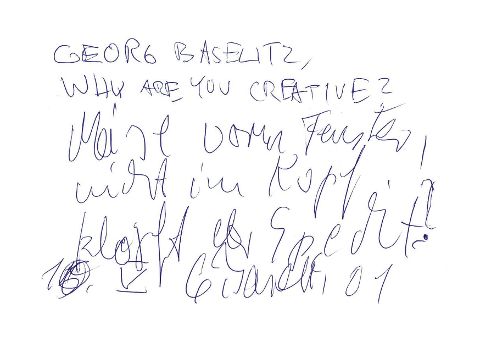 GEORG BASELITZ,
WHY ARE YOU CREATIVE?
Meise vorm Fenster,
nicht im Kopf
klopft der Specht!
G. Baselitz 01